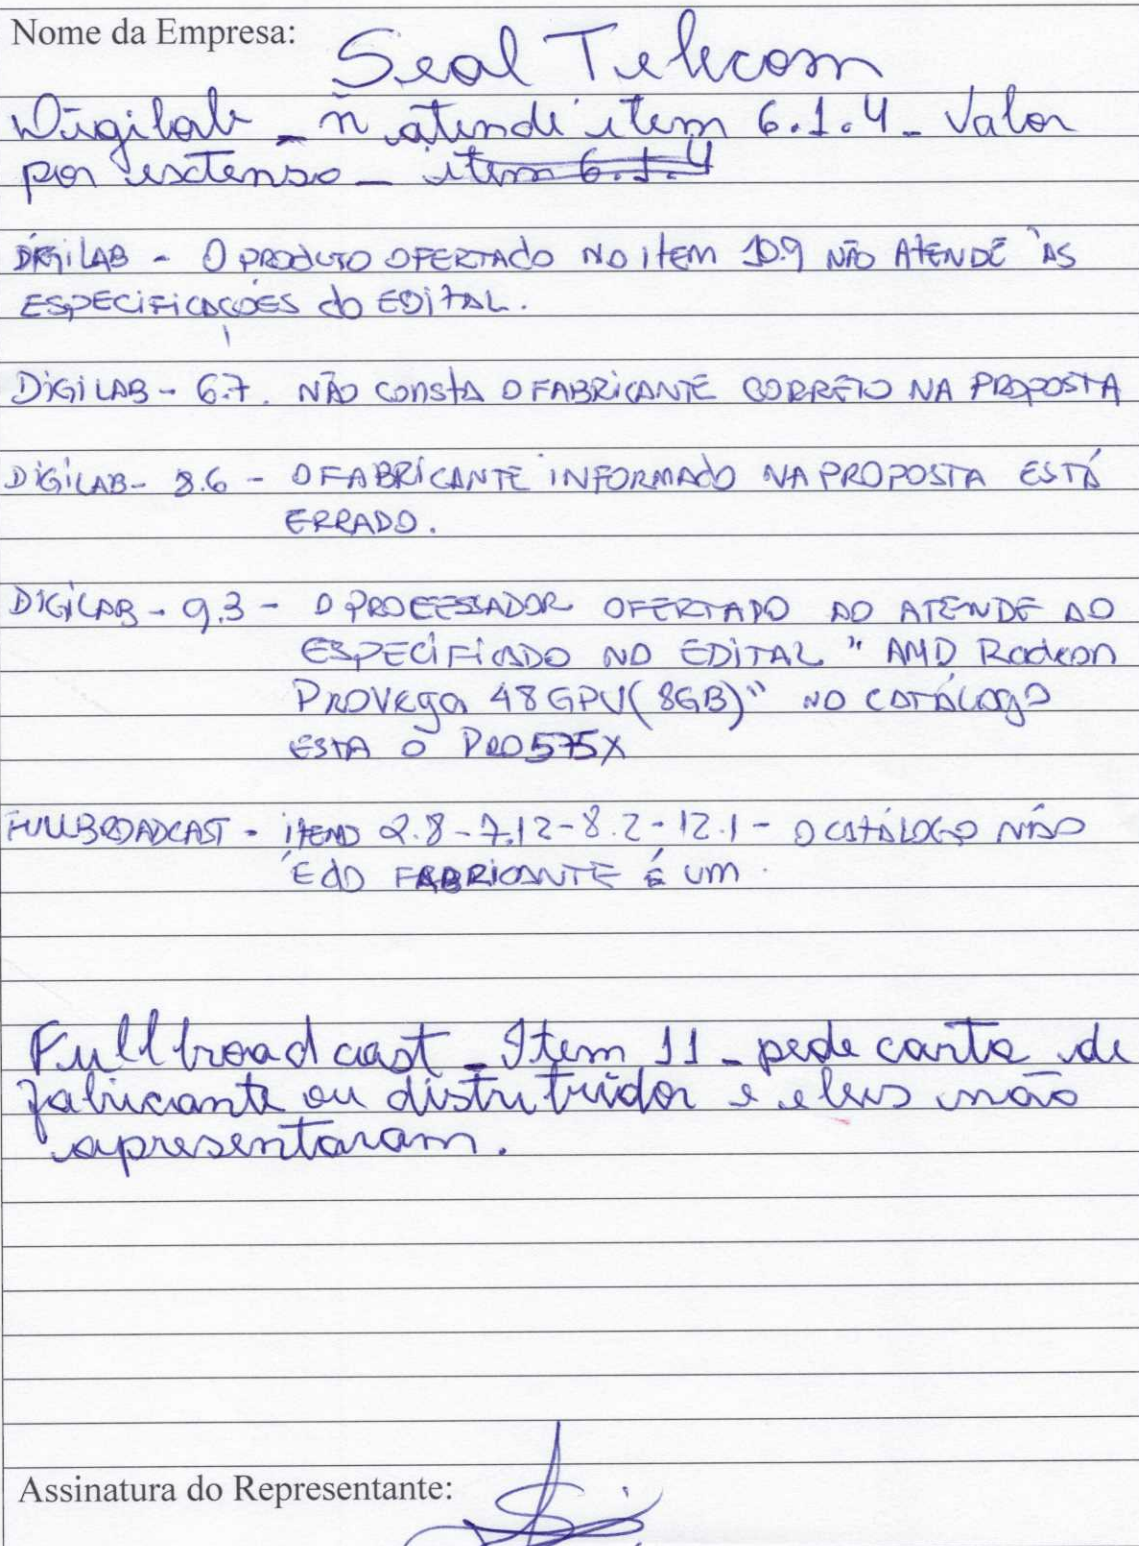 Nome da Empresa: Seal Telecom
Digilab - ñ atende item 6.1.4 - Valor
por extenso - item 6.1.4
DIGILAB - O PRODUTO OFERTADO NO ITEM 10.9 NÃO ATENDE ÀS
ESPECIFICAÇÕES do EDITAL.
DIGILAB - 6.7. NÃO CONSTA O FABRICANTE CORRETO NA PROPOSTA
DIGILAB - 8.6 - O FABRICANTE INFORMADO NA PROPOSTA ESTÁ
ERRADO.
DIGILAB - 9.3 - O PROCESSADOR OFERTADO AO ATENDE AO
ESPECIFICADO NO EDITAL "AMD Radeon
PROVega 48 GPU(8GB)" NO CATÁLOGO
ESTA O PRO575X
FULLBROADCAST - ITENS 2.8 - 7.12 - 8.2 - 12.1 - O CATÁLOGO NÃO
É dO FABRICANTE É UM.
Fullbroadcast - Item 11 - pede carta de
fabricante ou distribuidor e eles não
apresentaram.
Assinatura do Representante: